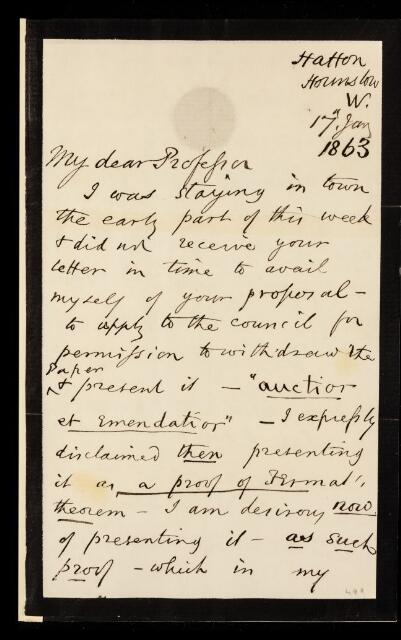 Hatton
Hounslow
W.
17th Jany
1863
My dear Professor
I was staying in town
the early part of this week
& did not receive your
letter in time to avail
myself of your proposal -
to apply to the council for
permission to withdraw the
Paper
& present it - "auctior
et Emendatior" - I expressly
disclaimed then presenting
it as a proof of Fermat's
theorem - I am desirous now
of presenting it - as such
proof - which in my